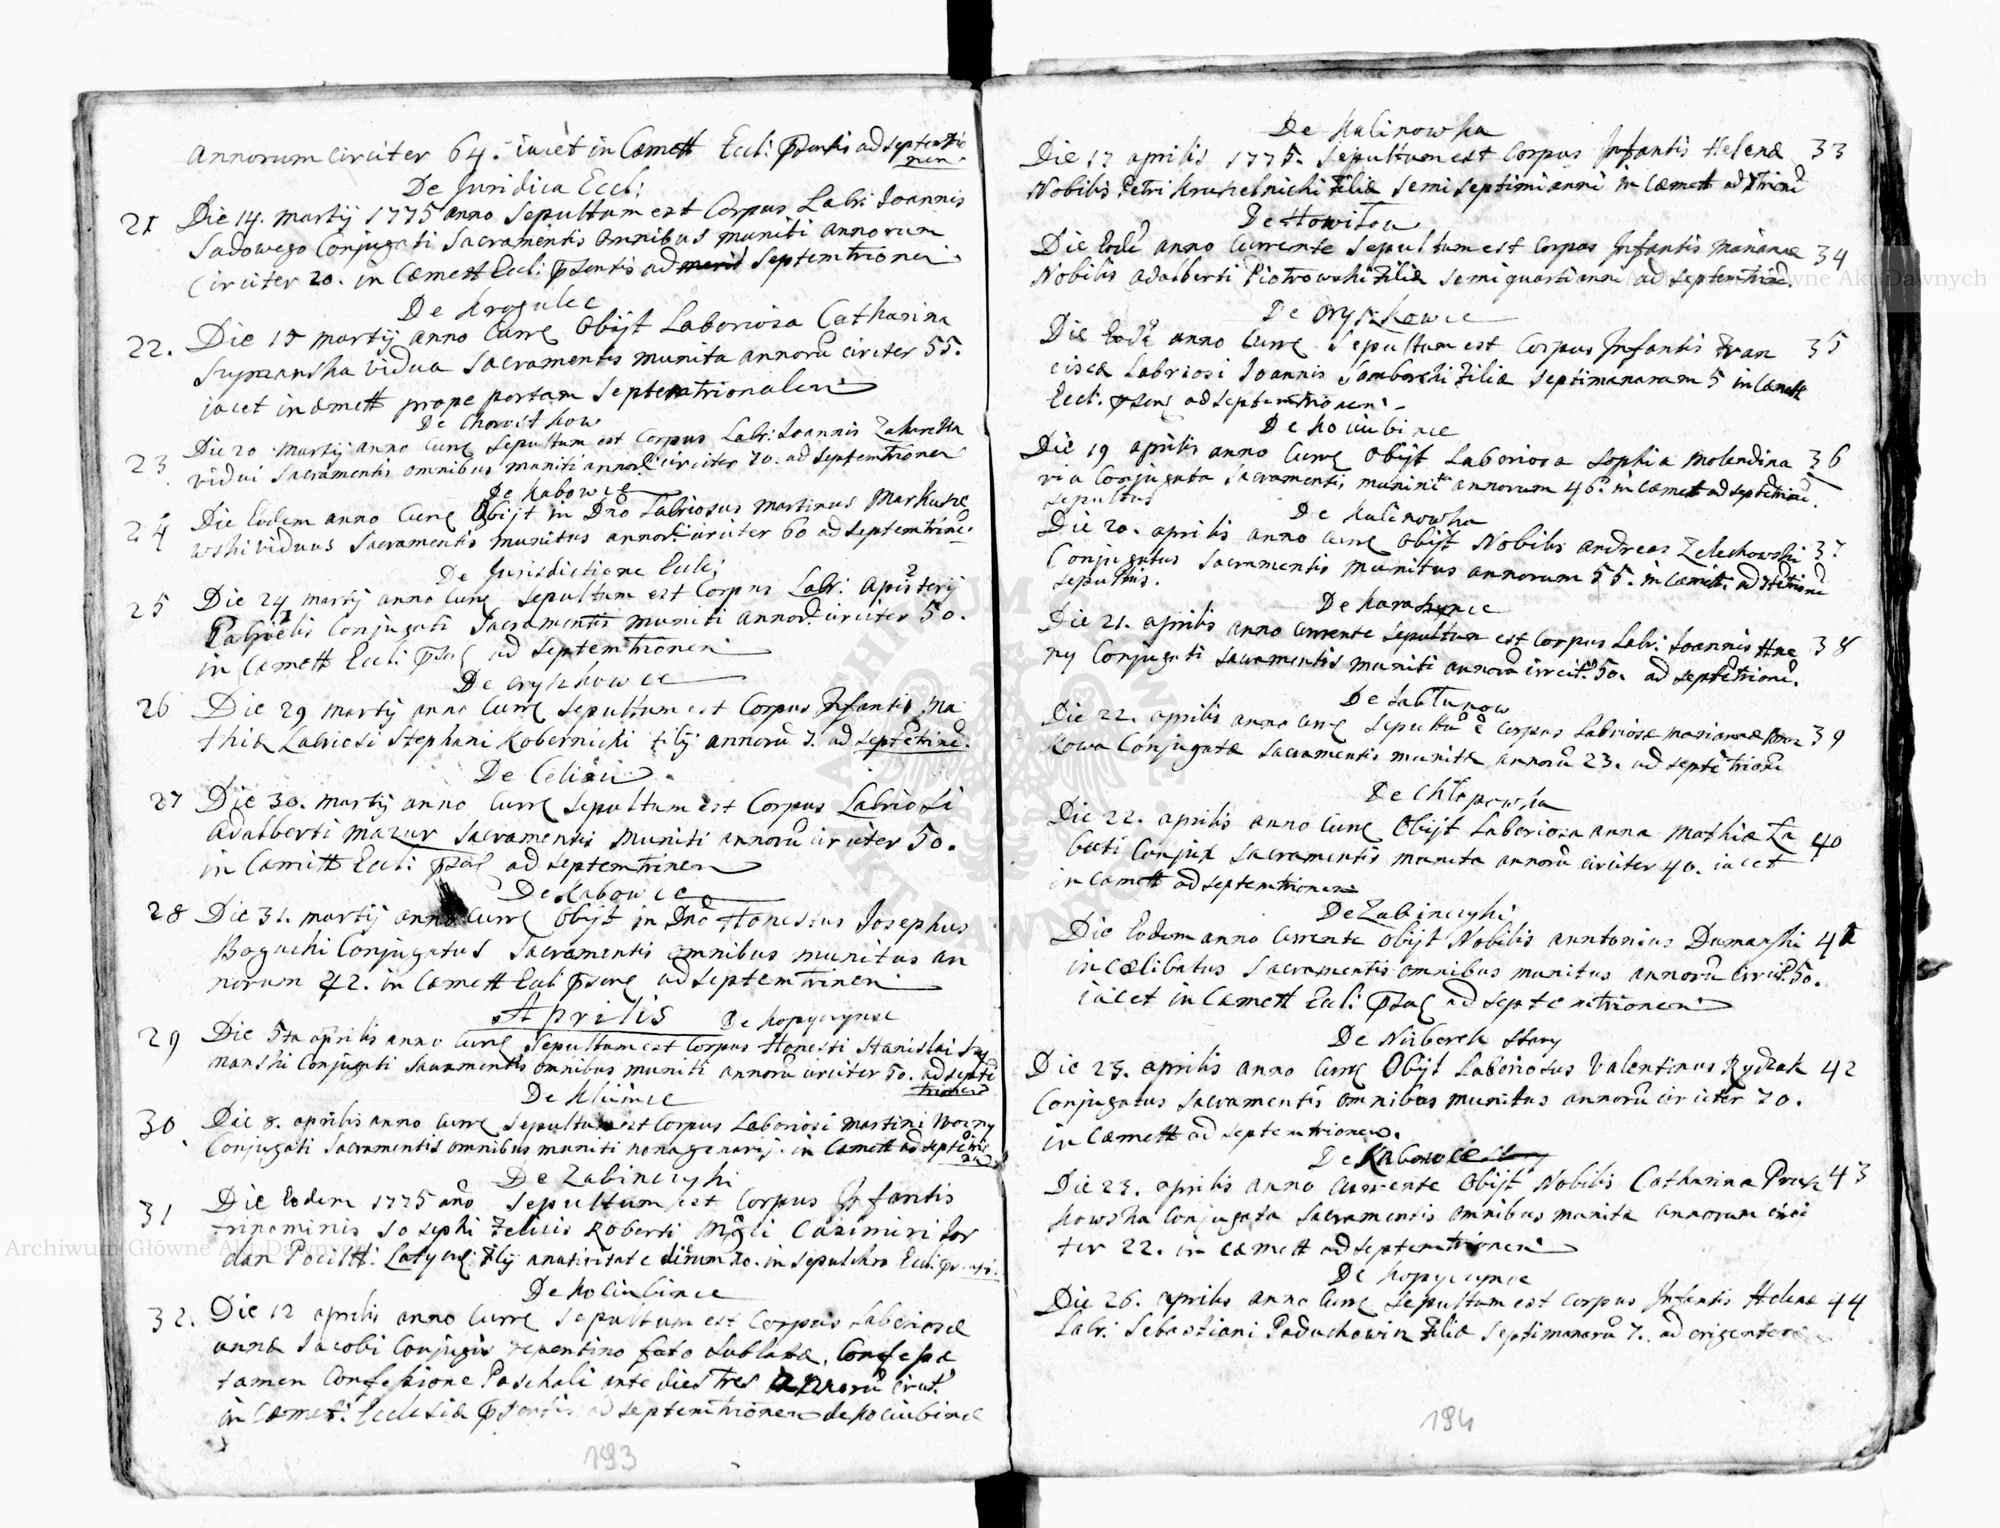 annorum circiter 64. iacet in Cæmett Eccl: psentis ad septentrio
nem.
De Juridica Eccl:
21 Die 14. martij 1775 anno Sepultum est Corpus Labr: Joannis
Sadowego Conjugati Sacramentis omnibus muniti annorum
Circiter 20. in Cæmett Eccl: psentis ad septemtrionem.
De Krogulec
22. Die 15 martij anno Curre Obijt Laboriosa Catharina
vidua Sacramentis munita annorū circiter 55.
iacet in cæmett prope portam Septemtrionalem
De Chorostkow
23 Die 20 martij anno Curre Sepultum est Corpus Labr: Joannis
vidui Sacramentis omnibus muniti annor circiter 70. ad septemtrionem
De Kabowce
24 Die Eodem anno Curre Obijt in Dno Labriosus Martinus Markusze
wski viduus Sacramentis munitus annor circiter 60 ad septemtrine.
De Jurisdictione Eccl:
25 Die 24 martij anno Curre Sepultum est Corpus Labr:
Conjugati Sacramentis muniti annor. circiter 50.
in Cæmett Eccl: psae ad septemtrionem
De oryszkowce
26 Die 29 martij anno Curre sepultum est Corpus Infantis Ma
thiæ Labriosi Stephani Kobernicki filij annorū 7. ad septetrine.
De Celiow
27 Die 30. martij anno Curre sepultum est Corpus Labriosi
Adalberti Mazur Sacramentis Muniti annorū circiter 50.
in Cæmett Eccl: psae ad septemtrinem
De Kabowce
28 Die 31. martij anno Curre Obijt in Dno Honestus Josephus
Boguchi Conjugatus Sacramentis omnibus munitus an
norum 42. in Cæmett Eccl psene ad septemtrinem
Aprilis De Kopyczynce
29 Die 5ta aprilis anno Curre Sepultum est Corpus Honesti Stanislai Szy
manski Conjugati Sacramentis omnibus muniti annorū circiter 50. ad septe
trionem
De Klimce
30. Die 8. aprilis anno Curre Sepultum est Corpus Laboriosi Martini Wozny
Conjugati Sacramentis omnibus muniti nonagenarij. in Cæmett ad septemtrio
nem
De Zabinczyki
31 Die Eodem 1775 año Sepultum est Corpus Infantis
trinominis Josephi Felicis Roberti Casimiri Jor
dan filij a nativitate dierum 20. in sepulchro Eccl:
De Kociubince
32. Die 12 aprilis anno Curre Sepultum est Corpus Laboriosæ
annæ Jacobi Conjugis repentino fato sublatæ, Confessæ
tamen Confessione Paschali ante dies tres annorū circit.
in Cæmet: Ecclesiæ psentis ad septemtrionem de Kociubince
193
De Kalinowka
Die 17 aprilis 1775. Sepultum est Corpus Infantis Helenæ 33
Nobilis Petri Kruszelnicki Filiæ Semi septimi anni in cæmett ad
De Howilow
Die Eode anno Currente Sepultum est Corpus Infantis Marianæ 34
Nobilis Adalberti Piotrowski Filiæ Semi quarti anni ad septemtrine.
De Oryszkowce
Die Eode anno Curre Sepultum est Corpus Infantis Fran 35
ciscæ Labriosi Joannis Samborski Filiæ Septimanarum 5 in Cæmett
Eccl. psens ad septemtrionem
De Kociubince
Die 19 aprilis anno Curre Obijt Laboriosa Sophia Molendina 36
ria Conjugata Sacramentis munita annorum 46. in Cæmett ad septetrione.
sepultus De Kalinowka
Die 20. aprilis anno Curre Obijt Nobilis andreas Zelechowski 37
Conjugatus Sacramentis munitus annorum 55. in Cæmett. ad
sepultus.
De Karaszynce
Die 21. aprilis anno Currente Sepultum est Corpus Labr: Joannis Hna 38
ny Conjugati Sacramentis muniti annorū circit. 50. ad septetrione.
De Jablunow
Die 22. aprilis anno Curre Sepultū e Corpus Labriosæ Mariannæ 39
kowa Conjugatæ Sacramentis munitæ annorū 23. ad septetrione
De Chlopowka
Die 22. aprilis anno Curre Obijt Laboriosa anna Mathiæ Za 40
Conjux Sacramentis munita annorū circiter 40. iacet
in Cæmett ad septemtrionem
De Zabinczyki
Die Eodem anno Currente Obijt Nobilis anntonius Dumanski 41
in Cælibatus Sacramentis omnibus munitus annorū circit. 50.
iacet in Cæmett Eccl: psae ad septemtrionem
De Niżborek Stary
Die 23. aprilis anno Curre Obijt Laboriosus Valentinus Rydzak 42
Conjugatus Sacramentis omnibus munitus annorū circiter 70.
in Cæmett ad septemtrionem.
De Kabowce
Die 23. aprilis anno Currente Obijt Nobilis Catharina Prus 43
kowska Conjugata Sacramentis omnibus munita annorum circi
ter 22. in cæmett ad septemtrionem
De Kopyczynce
Die 26. aprilis anno Curre Sepultum est Corpus Infantis Helenæ 44
Labr: Sebastiani Paduchowicz Filiæ Septimanarū 7. ad orientem
194
Archiwum Główne Akt Dawnych
Archiwum Główne Akt Dawnych
ARCHIWUM GŁÓWNE AKT DAWNYCH